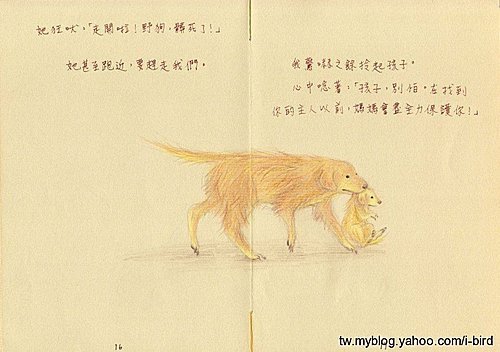 她狂吠，「走開啦！野狗，髒死了！」
她甚至跑近，要趕走我們。
我驚嚇之餘撿起孩子。
心中唸著，「孩子，別怕。在找到
你的主人以前，媽媽會盡全力保護你！」
16
tw.myblog.yahoo.com/i-bird